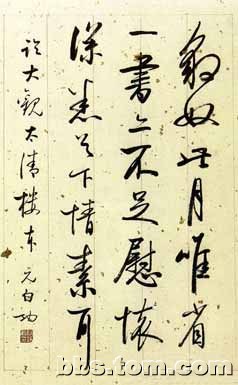 豹奴此月唯省
一書亦不足慰懷
深悉足下情素耳
臨大觀太清樓本 元白功
bbs.tom.com